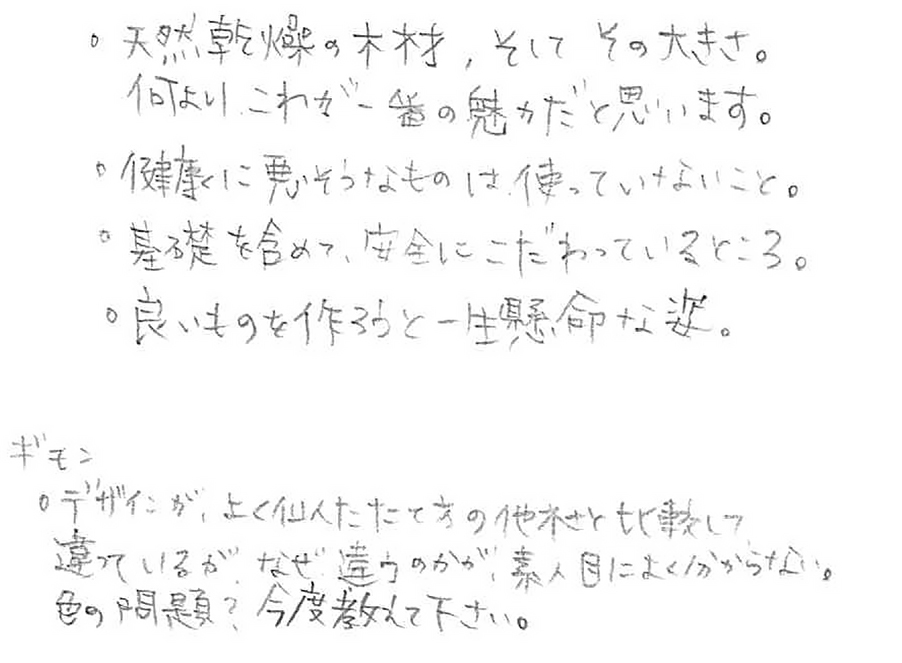 。天然乾燥の木材，そして その大きさ。
何より、これが一番の魅力だと思います。
。健康に悪いそうなものは、使っていないこと。
。基礎を含めて、安全にこだわっているところ。
。良いものを作ろうと一生懸命な姿。
ギモン
。デザインが、よく
の他 と比較して、
違っているが、なぜ違うのかが、素人目によく分からない。
色の問題？今度教えて下さい。